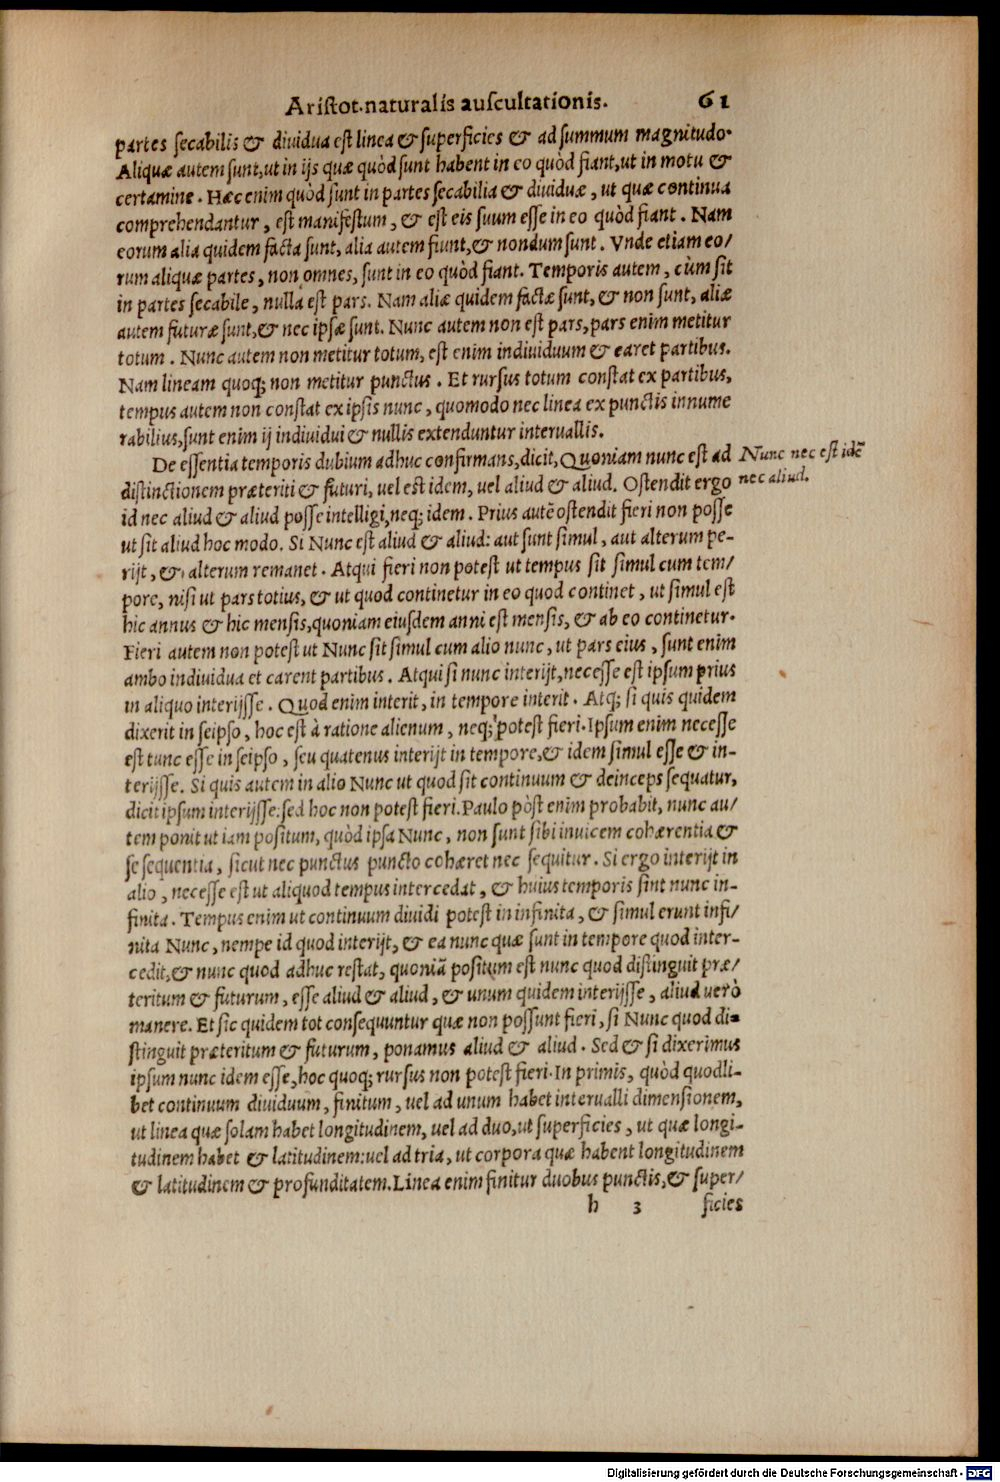 Aristot. naturalis auscultationis. 61
partes secabilis & diuidua est linea & superficies & ad summum magnitudo.
Aliquæ autem sunt, ut in ijs quæ quòd sunt habent in eo quòd fiant, ut in motu &
certamine. Hæc enim quòd sunt in partes secabilia & diuiduæ, ut quæ continua
comprehendantur, est manifestum, & est eis suum esse in eo quòd fiant. Nam
eorum alia quidem facta sunt, alia autem fiunt, & nondum sunt. Vnde etiam eo/
rum aliquæ partes, non omnes, sunt in eo quòd fiant. Temporis autem, cùm sit
in partes secabile, nulla est pars. Nam aliæ quidem factæ sunt, & non sunt, aliæ
autem futuræ sunt, & nec ipsæ sunt. Nunc autem non est pars, pars enim metitur
totum. Nunc autem non metitur totum, est enim indiuiduum & caret partibus.
Nam lineam quoq; non metitur punctus. Et rursus totum constat ex partibus,
tempus autem non constat ex ipsis nunc, quomodo nec linea ex punctis innume
rabilius, sunt enim ij indiuidui & nullis extenduntur interuallis.
De essentia temporis dubium adhuc confirmans, dicit, Quoniam nunc est ad
Nunc nec est idē
nec aliud.
distinctionem præteriti & futuri, uel est idem, uel aliud & aliud. Ostendit ergo
id nec aliud & aliud posse intelligi, neq; idem. Prius autē ostendit fieri non posse
ut sit aliud hoc modo. Si Nunc est aliud & aliud: aut sunt simul, aut alterum pe-
rijt, & alterum remanet. Atqui fieri non potest ut tempus sit simul cum tem/
pore, nisi ut pars totius, & ut quod continetur in eo quod continet, ut simul est
hic annus & hic mensis, quoniam eiusdem anni est mensis, & ab eo continetur.
Fieri autem non potest ut Nunc sit simul cum alio nunc, ut pars eius, sunt enim
ambo indiuidua et carent partibus. Atqui si nunc interijt, necesse est ipsum prius
in aliquo interijsse. Quod enim interit, in tempore interit. Atq; si quis quidem
dixerit in seipso, hoc est à ratione alienum, neq; potest fieri. Ipsum enim necesse
est tunc esse in seipso, seu quatenus interijt in tempore, & idem simul esse & in-
terijsse. Si quis autem in alio Nunc ut quod sit continuum & deinceps sequatur,
dicit ipsum interijsse: sed hoc non potest fieri. Paulo pòst enim probabit, nunc au/
tem ponit ut iam positum, quòd ipsa Nunc, non sunt sibi inuicem cohærentia &
se sequentia, sicut nec punctus puncto cohæret nec sequitur. Si ergo interijt in
alio, necesse est ut aliquod tempus intercedat, & huius temporis sint nunc in-
finita. Tempus enim ut continuum diuidi potest in infinita, & simul erunt infi/
nita Nunc, nempe id quod interijt, & ea nunc quæ sunt in tempore quod inter-
cedit, & nunc quod adhuc restat, quoniā positum est nunc quod distinguit præ/
teritum & futurum, esse aliud & aliud, & unum quidem interijsse, aliud uerò
manere. Et sic quidem tot consequuntur quæ non possunt fieri, si Nunc quod di-
stinguit præteritum & futurum, ponamus aliud & aliud. Sed & si dixerimus
ipsum nunc idem esse, hoc quoq; rursus non potest fieri. In primis, quòd quodli-
bet continuum diuiduum, finitum, uel ad unum habet interualli dimensionem,
ut linea quæ solam habet longitudinem, uel ad duo, ut superficies, ut quæ longi-
tudinem habet & latitudinem: uel ad tria, ut corpora quæ habent longitudinem
& latitudinem & profunditatem. Linea enim finitur duobus punctis, & super/
h 3 ficies
Digitalisierung gefördert durch die Deutsche Forschungsgemeinschaft - DFG